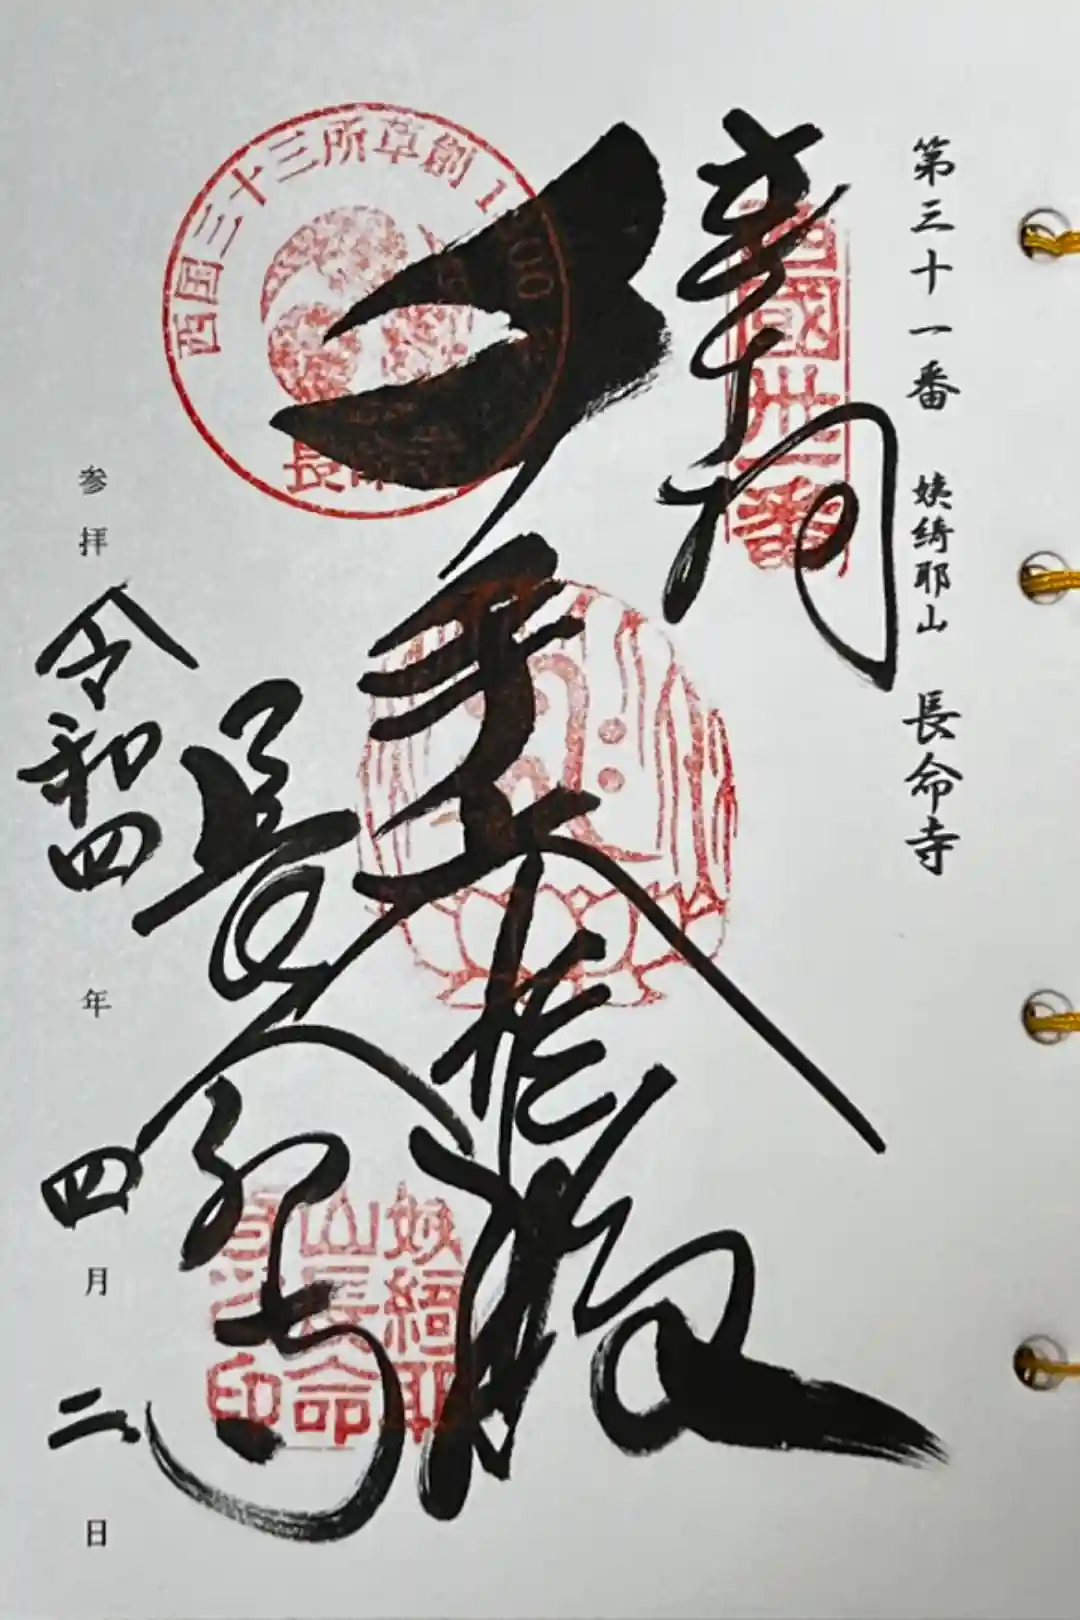 第三十一番 姨綺耶山 長命寺
奉拝
西國卅一番
西国三十三所草創1300年
長命寺
長命寺
姨綺耶
山長命
寺之印
参拝 令和四年四月二日